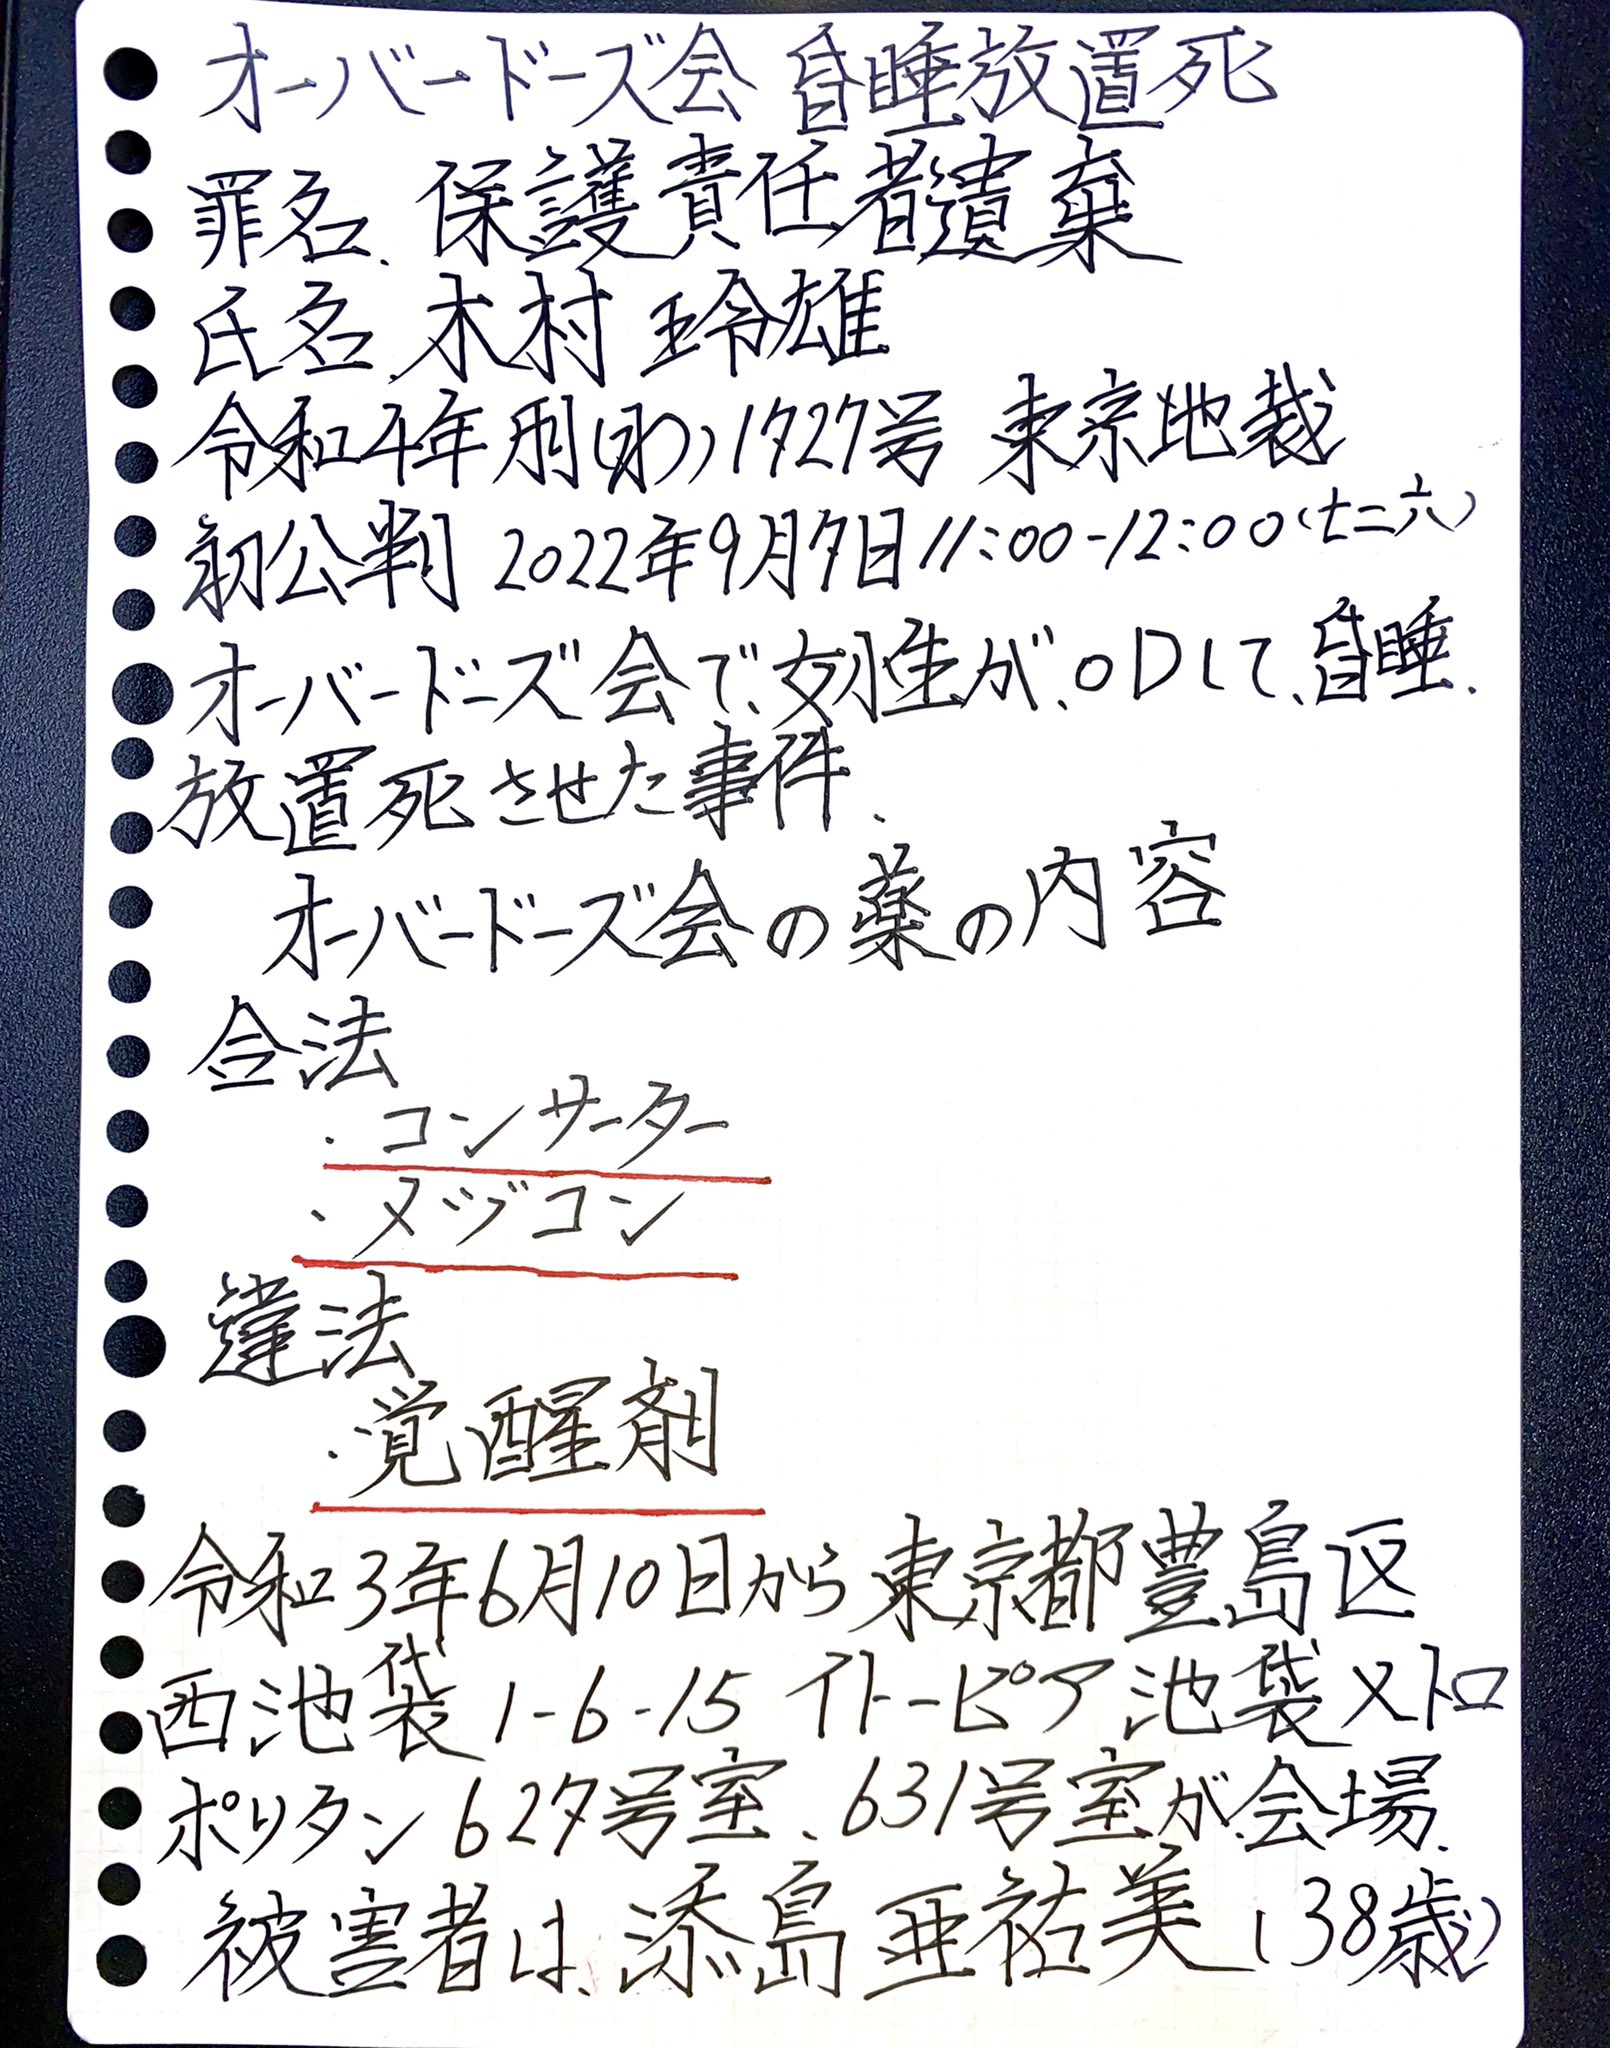 オーバードーズ会 昏睡放置死
罪名、保護責任者遺棄
氏名、木村 玲雄
令和4年刑(わ)1727号 東京地裁
初公判 2022年9月7日11:00-12:00(七二六)
オーバードーズ会で、女性が、ODして、昏睡、
放置死させた事件、
オーバードーズ会の薬の内容
合法
・コンサーター
・メジコン
違法
・覚醒剤
令和3年6月10日から東京都豊島区
西池袋1-6-15 イトーピア池袋メトロ
ポリタン627号室、631号室が会場、
被害者は、添島 亜祐美(38歳)